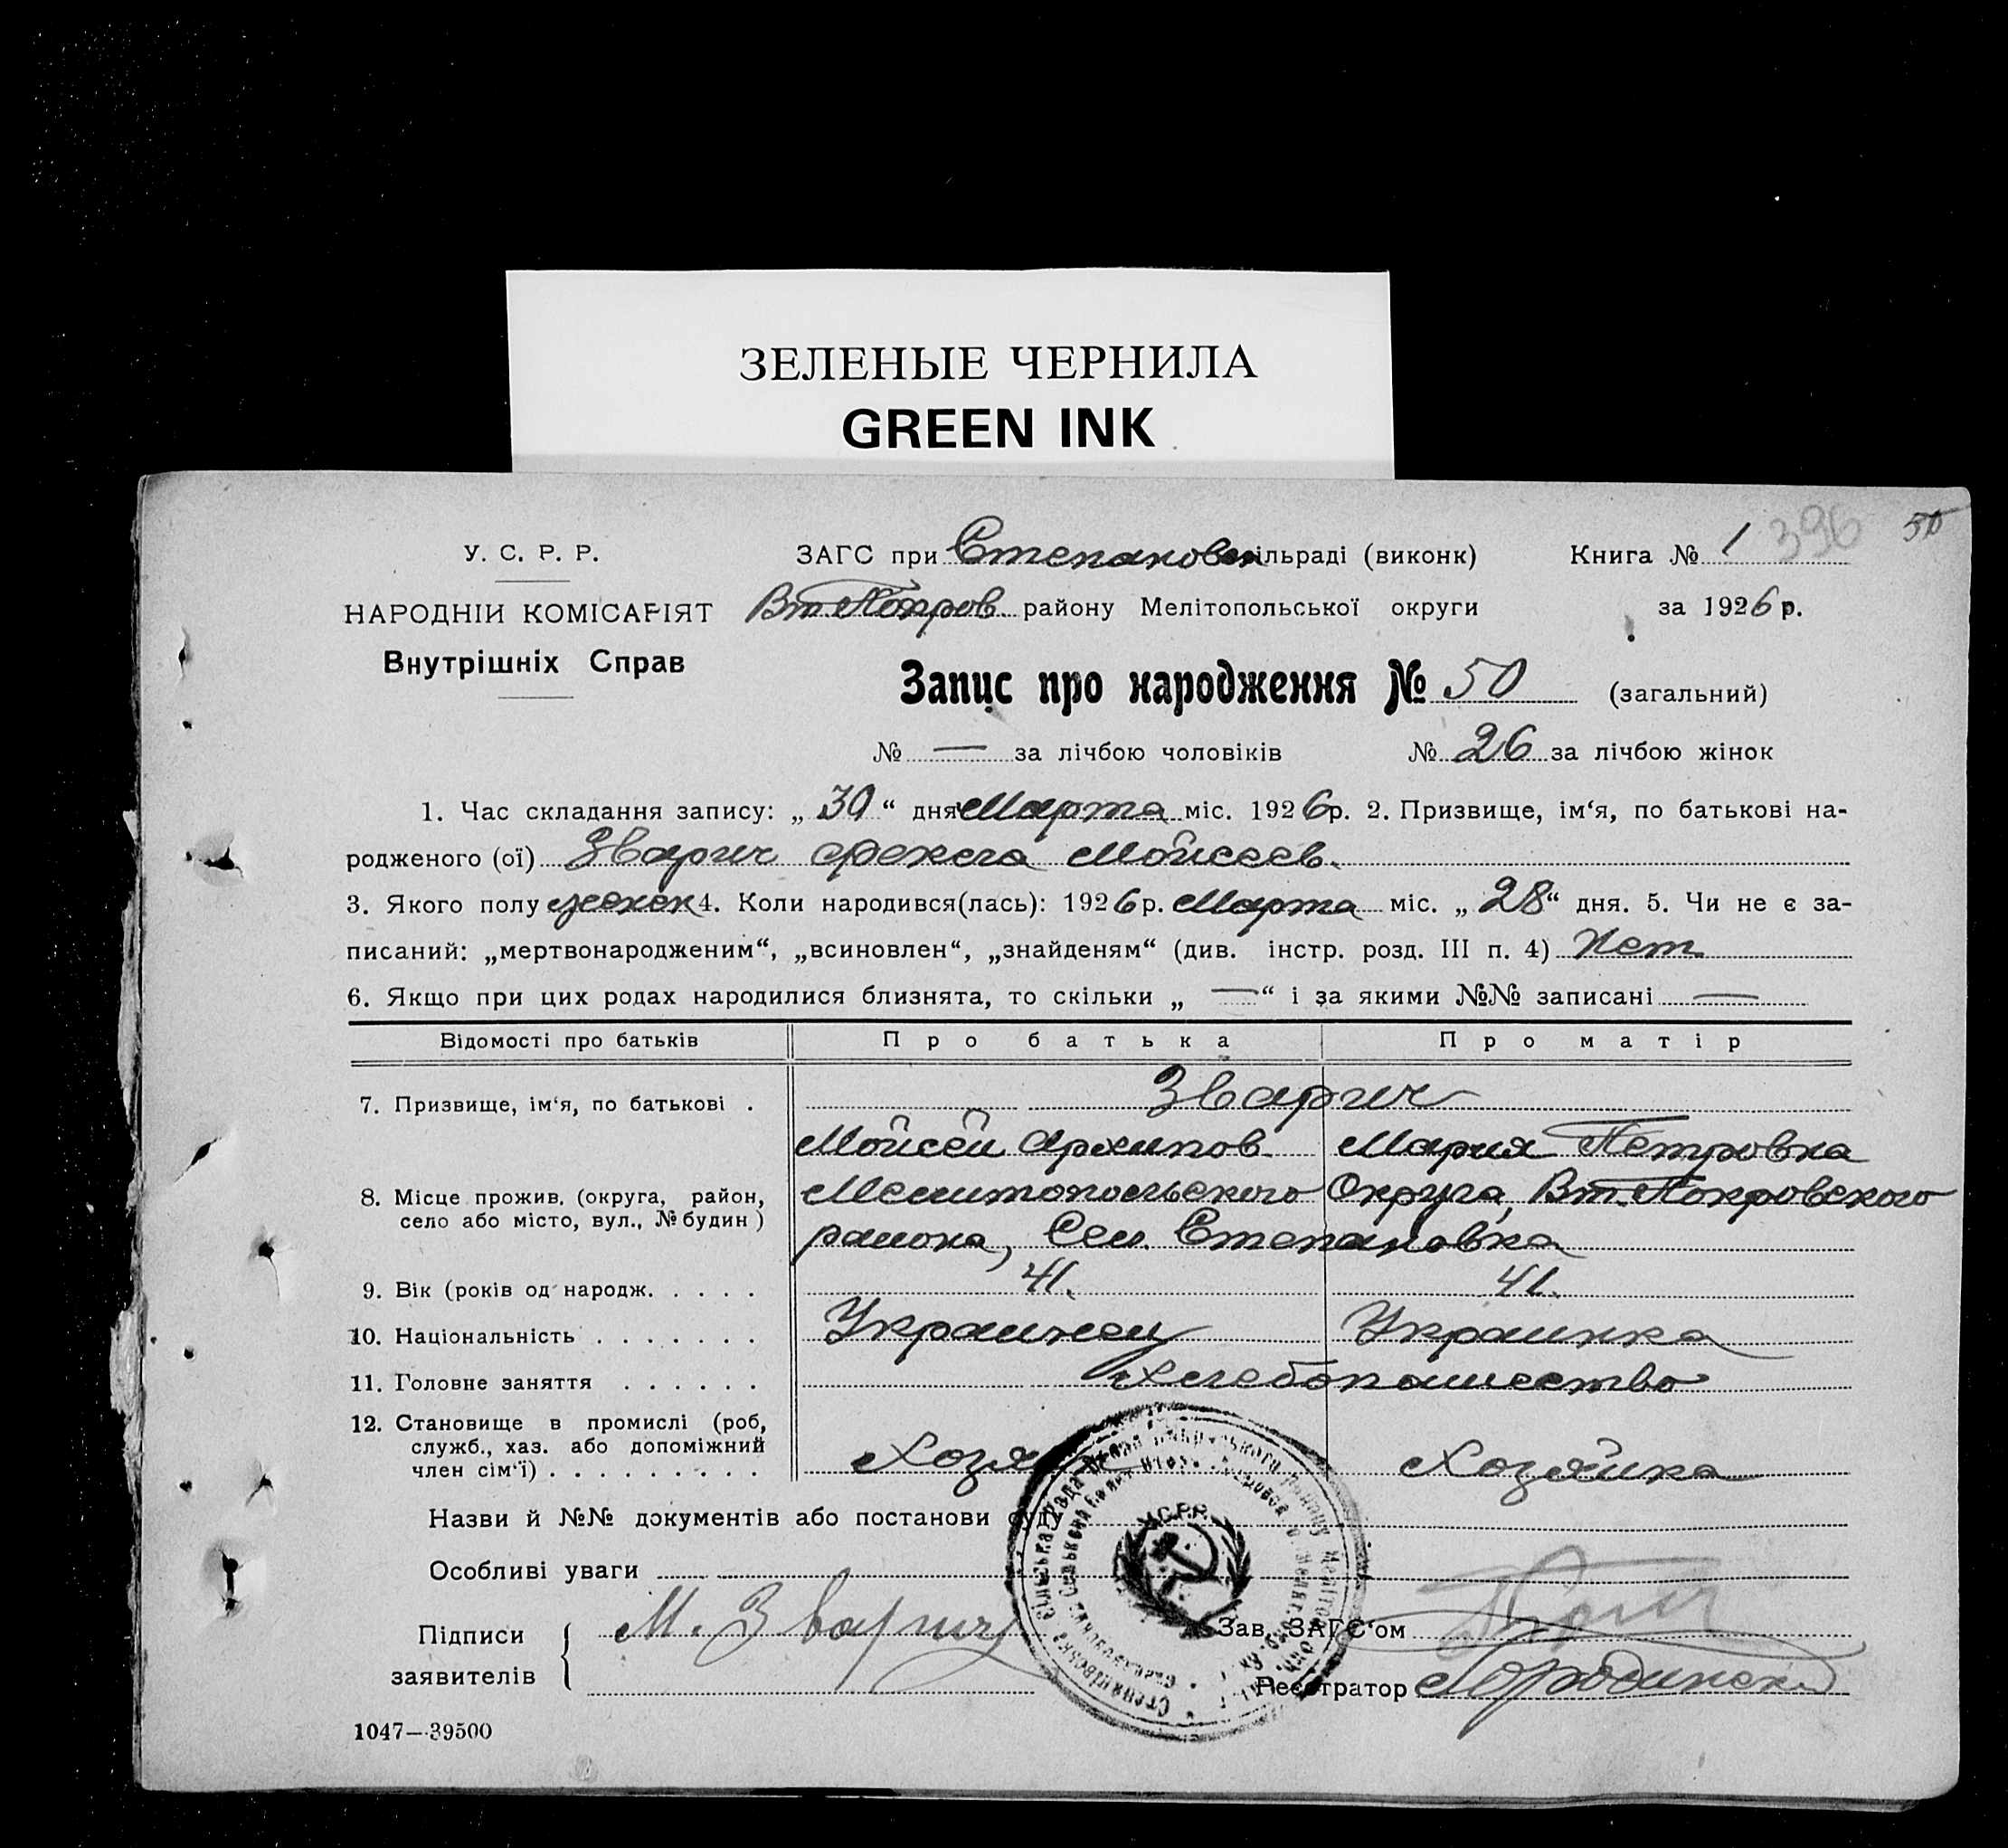 ЗЕЛЕНЫЕ ЧЕРНИЛА
GREEN INK
396 50
У. С. Р. Р. ЗАГС при Степановск сільраді (виконк) Книга № 1
НАРОДНІЙ КОМІСАРІЯТ Вт. Покров. району Мелітопольської округи за 1926 р.
Внутрішніх Справ
Запис про народження № 50 (загальний)
№ — за лічбою чоловіків № 26 за лічбою жінок
1. Час складання запису: „30“ дня Марта міс. 1926р. 2. Призвище, ім'я, по батькові на-
родженого (ої) Зварич Фекла Мойсеев.
3. Якого полу женск 4. Коли народився(лась): 1926р. Марта міс. „28“ дня. 5. Чи не є за-
писаний: „мертвонародженим“, „всиновлен“, „знайденям“ (див. інстр. розд. III п. 4) Нет
6. Якщо при цих родах народилися близнята, то скільки „—“ і за якими №№ записані —
Відомості про батьків Про батька Про матір
7. Призвище, ім'я, по батькові . Зварич
Мойсей Архипов Мария Петровна
8. Місце прожив. (округа, район, Мелитопольского Округа, Вт. Покровского
село або місто, вул., № будин) района, Сел. Степановка
9. Вік (років од народж. . . . . 41. 41.
10. Національність . . . . . . . Украинец Украинка
11. Головне заняття . . . . . . Хлебопашество
12. Становище в промислі (роб,
служб., хаз. або допоміжний
член сім'ї) . . . . . . . . . Хозяин Хозяйка
Назви й №№ документів або постанови суду
Особливі уваги
У.С.Р.Р.
Підписи М. Зварич Зав. ЗАГС'ом
заявителів Реєстратор
1047—39500